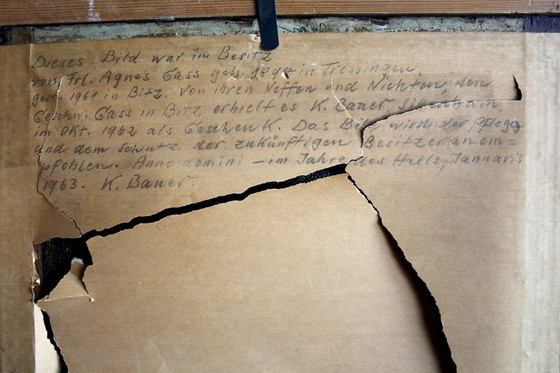 Dieses Bild war im Besitz
von Frl. Agnes Gass geb. 1890 in Trossingen
gest. 1961 in Bitz. Von ihren Neffen und Nichten, den
Geschw. Gass in Bitz erhielt es K. Bauer,
im Okt. 1962 als Geschenk. Das Bild wird der Pflege
und dem Schutz der zukünftigen Besitzer anem=
pfohlen. Anno domini – im Jahre des Heils, Jannaris
1963. K. Bauer